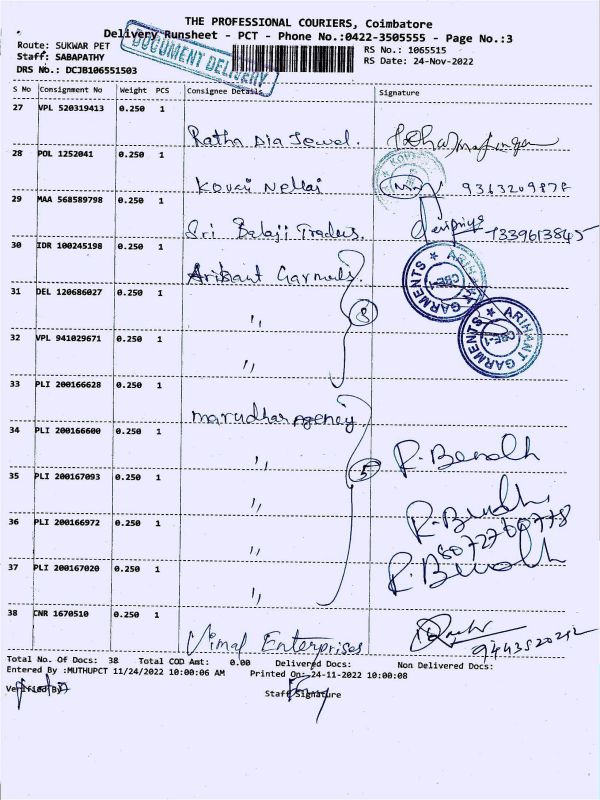 THE PROFESSIONAL COURIERS, Coimbatore
Delivery Runsheet - PCT - Phone No.:0422-3505555 - Page No.:3
Route: SUKWAR PET
RS No.: 1065515
Staff: SABAPATHY
RS Date: 24-Nov-2022
DRS No.: DCJB106551503
DOCUMENT DELIVERY
S No Consignment No Weight PCS Consignee Details Signature
27 VPL 520319413 0.250 1
Ratna Dia Jewel.
28 POL 1252041 0.250 1
Kovai Nellai 9363209878
29 MAA 568589798 0.250 1
Sri Balaji Traders. 7339613845
30 IDR 100245198 0.250 1
Arihant Garments.
ARIHANT GARMENTS CBE-1
31 DEL 120686027 0.250 1
" 3
ARIHANT GARMENTS CBE-1
32 VPL 941029671 0.250 1
"
33 PLI 200166628 0.250 1
Marudhar Agency
34 PLI 200166600 0.250 1
" 5
35 PLI 200167093 0.250 1
"
36 PLI 200166972 0.250 1
"
37 PLI 200167020 0.250 1
"
38 CNR 1670510 0.250 1
Vimal Enterprises 9443520212
Total No. Of Docs: 38 Total COD Amt: 0.00 Delivered Docs: Non Delivered Docs:
Entered By :MUTHUPCT 11/24/2022 10:00:06 AM Printed On: 24-11-2022 10:00:08
Verified By
Staff Signature